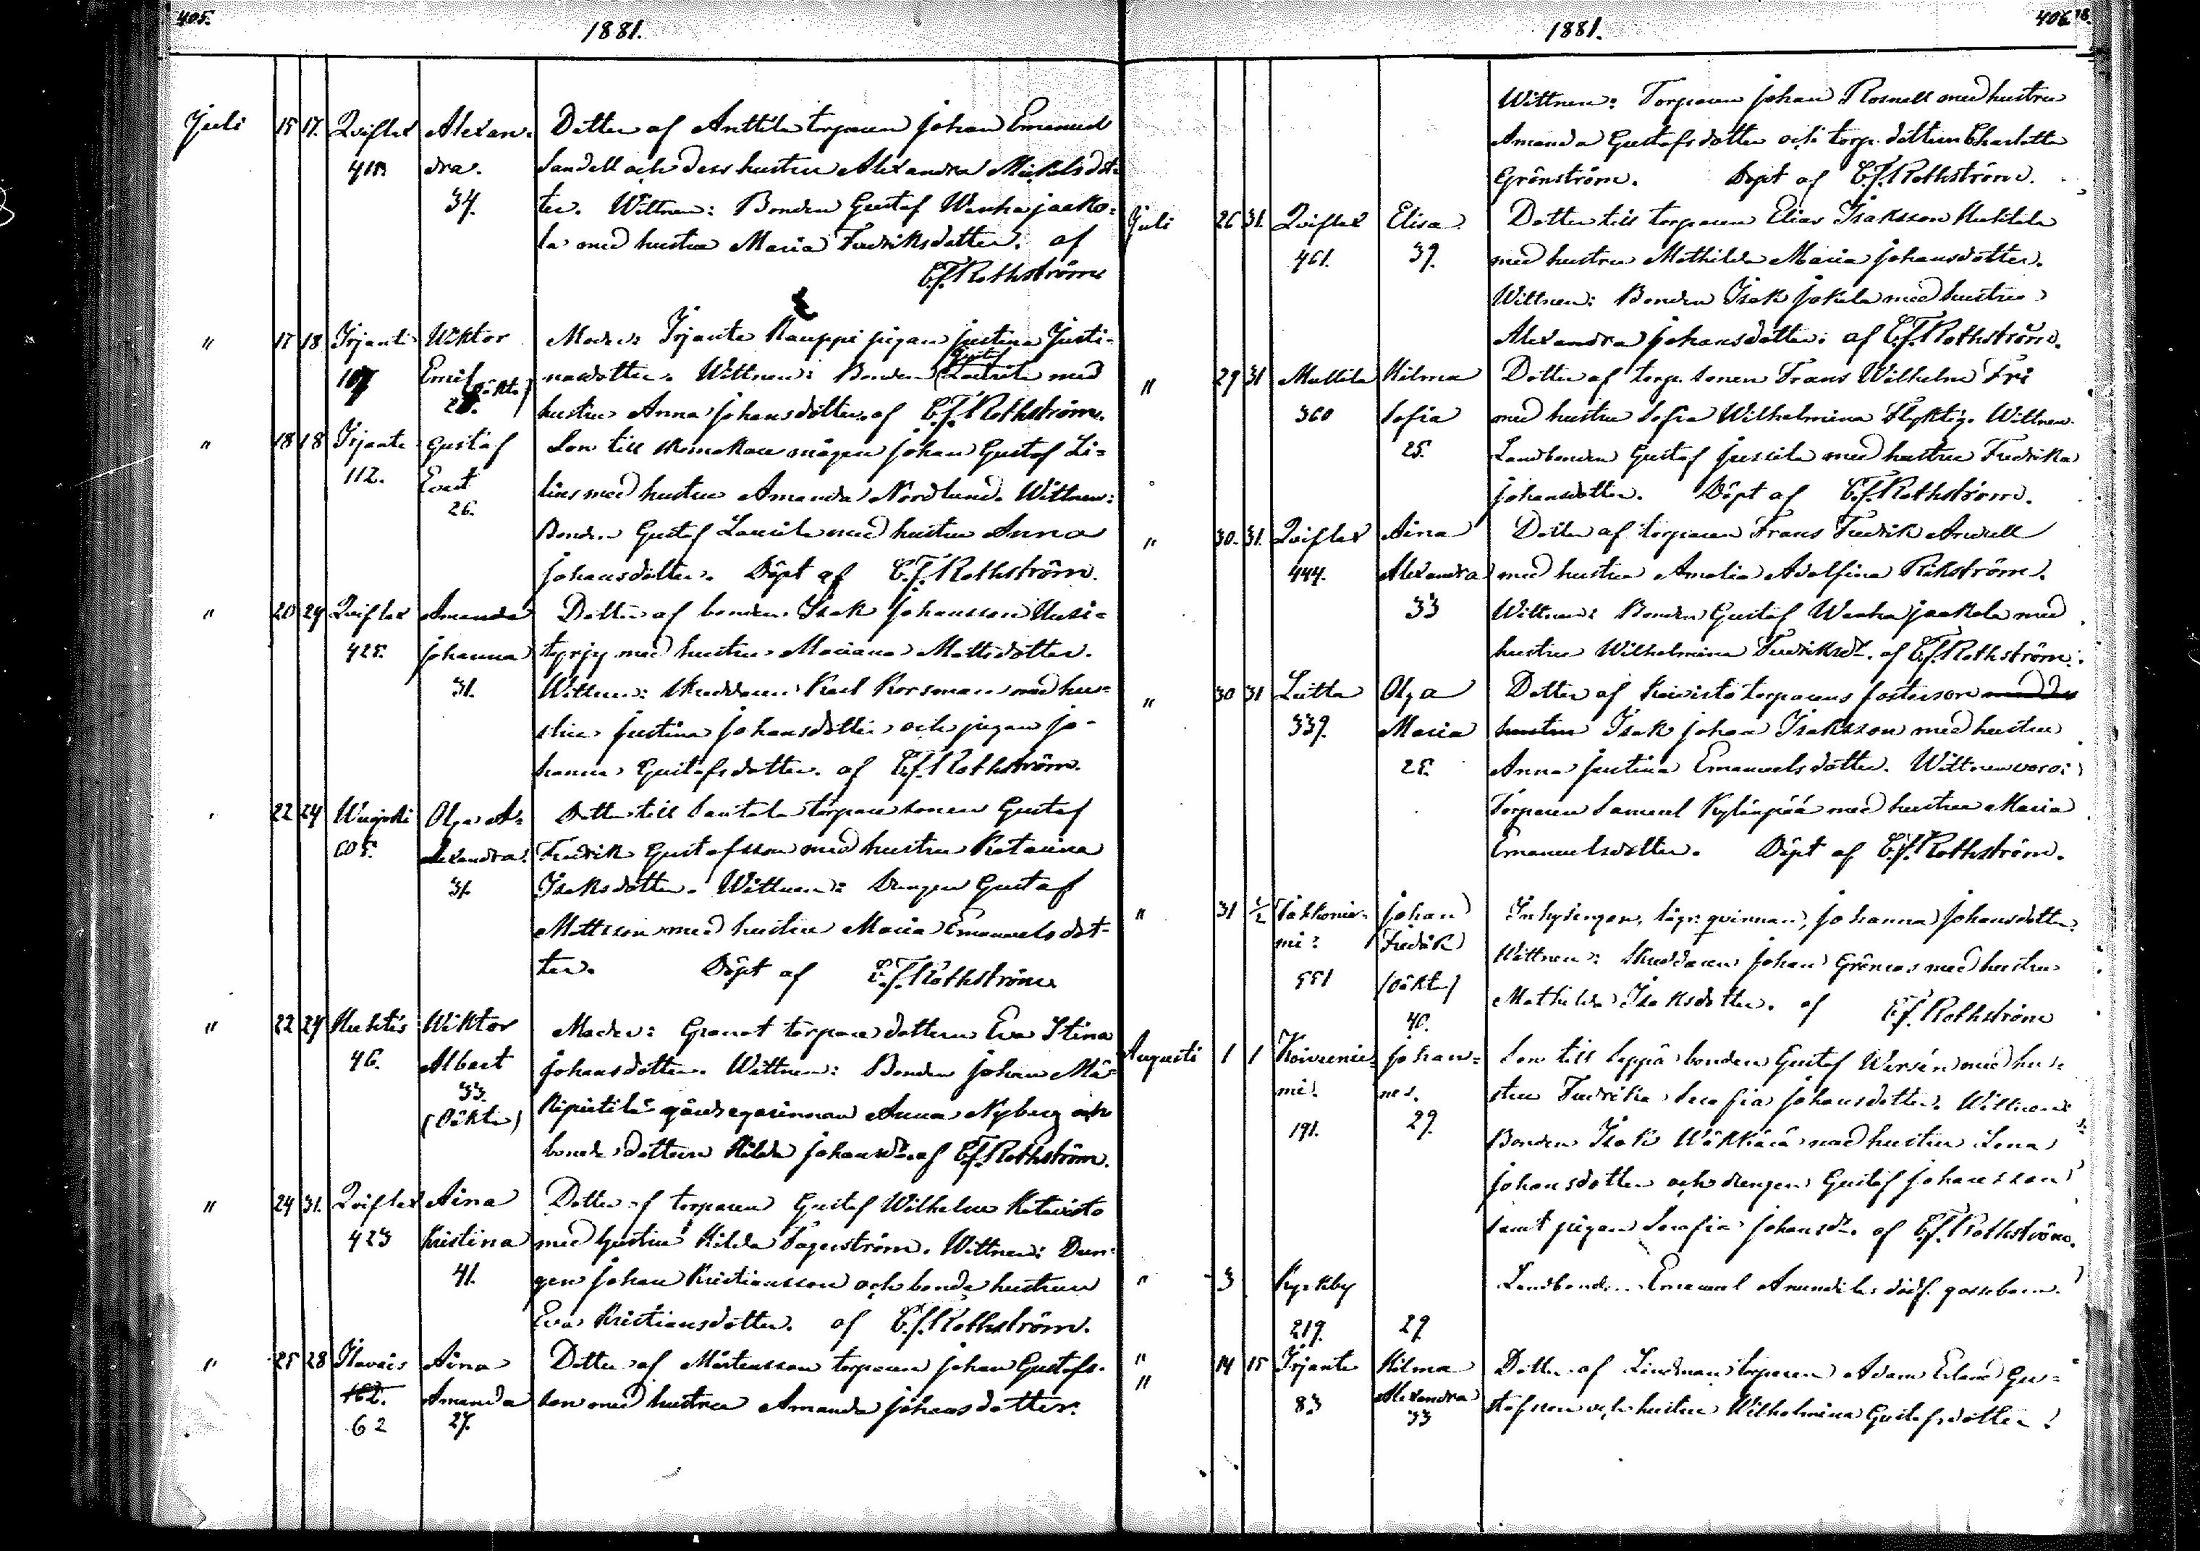 405.
1881.
Juli 15 17. Qviflax Alexan- Dotter af Anttila torparen Johan Emanuel
418 dra. Sandell och dess hustru Alexandra Mickelsdot-
34. ter. Wittnen: Bonden Gustaf Wanhajaako-
la med hustru Maria Fredriksdotter. af
C.F. Rothström
" 17 18 Irjante Wiktor Moder: Irjante Kauppi pigan Justina Justi-
107 Emil (oäkta) nasdotter. Wittnen: Bonden Gustaf Laurila med
hustru Anna Johansdotter. af C.F. Rothström.
" 18 18 Irjante Gustaf Son till skomakare mågen Johan Gustaf Li-
112. Evert lius med hustru Amanda Nordlund. Wittnen:
26. Bonden Gustaf Laurila med hustru Anna
Johansdotter. Döpt af C.F. Rothström.
" 20 24 Qviflax Amanda Dotter af bonden Isak Johansson Uusi-
425. Johanna typpy med hustru Mariana Mattsdotter.
31. Wittnen: Skräddaren Karl Korsman med hu-
stru Justina Johansdotter och pigan Jo-
hanna Gustafsdotter. af C.F. Rothström.
22 24 Olga A- Dotter till Santala torpare sonen Gustaf
605. lexandra. Fredrik Gustafsson med hustru Katarina
31. Isaksdotter. Wittnen: Drengen Gustaf
Mattsson med hustru Maria Emanuelsdot-
ter. Döpt af C.F. Rothström
" 22 24 Huhtis Wiktor Moder: Granat torpare dottern Eva Stina
46. Albert Johansdotter. Wittnen: Bonden Johan Mä-
33. kipirtilä gårdsegarinnan Anna Nyberg och
(Oäkta) bonde dottern Hilda Johansdr. af C.F. Rothström.
" 24 31. Qviflax Aina Dotter af torparen Gustaf Wilhelm Ketavisto
423 Kristina med hustru Hilda Fagerström. Wittnen: Dren-
41. gen Johan Kristiansson och bonde hustrun
Eva Kristiansdotter. af C.F. Rothström.
" 25 28 Ilavais Aina Dotter af Mårtensson torparen Johan Gustafs-
162. Amanda son med hustru Amanda Johansdotter.
62 27.
406.
1881.
Wittnen: Torparen Johan Rosnell med hustru
Amanda Gustafsdotter och torp. dottern Charlotta
Grönström. Döpt af C.F. Rothström.
Juli 26 31. Qviflax Elisa Dotter till torparen Elias Isaksson Huhtala
461. 39. med hustru Mathilda Maria Johansdotter.
Wittnen: Bonden Isak Jokela med hustru
Alexandra Johansdotter. af C.F. Rothström.
" 29 31 Mattila Hilma Dotter af torp. sonen Frans Wilhelm Fri
360 Sofia med hustru Sofia Wilhelmina Flyktig. Wittnen.
25. Landbonden Gustaf Jussila med hustru Fredrika
Johansdotter. Döpt af C.F. Rothström.
" 30. 31. Qviflax Aina Dotter af torparen Frans Fredrik Arvell
444. Alexandra med hustru Amalia Adolfina Rikström.
33 Wittnen: Bonden Gustaf Wanhajaakola med
hustru Wilhelmina Fredriksdr. af C.F. Rothström.
" 30 31 Olga Dotter af Koivisto torparens fosterson med des
339. Maria hustru Isak Johan Isaksson med hustru
25. Anna Justina Emanuelsdotter. Wittnen voro:
Torparen Samuel Kylänpää med hustru Maria
Emanuelsdotter. Döpt af C.F. Rothström.
" 31 2/2 Takkonie- Johan Inhysingen, lägr. qvinnan, Johanna Johansdotter.
mi: Fredrik Wittnen: Skräddaren Johan Grönroos med hustru
551 (Oäkta) Mathilda Isaksdotter. af C.F. Rothström
40.
Augusti 1 1 Koivunie- Johan- Son till Seppä bonden Gustaf Wersén med hu-
mi. nes. stru Fredrika Serafia Johansdotter. Wittnen:
191. 29. Bonden Isak med hustru Lena
Johansdotter och drengen Gustaf Johansson
samt pigan Serafia Johansdr. af C.F. Rothström.
" 3 Kyrkby Landbonden Emanuel Anundilas dödf. gossebarn.
219. 29.
" 14 15 Irjante Hilma Dotter af Lindman torparen Adam Erland Gu-
" 83 Alexandra stafsson och hustru Wilhelmina Gustafsdotter.
33